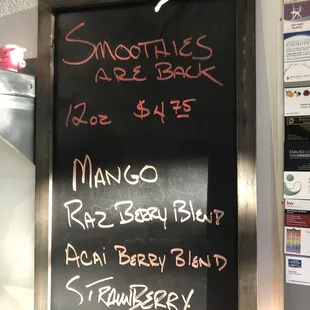 SMOOTHIES
ARE BACK
12oz $4.75
MANGO
RAZ BERRY BLEND
ACAI BERRY BLEND
STRAWBERRY